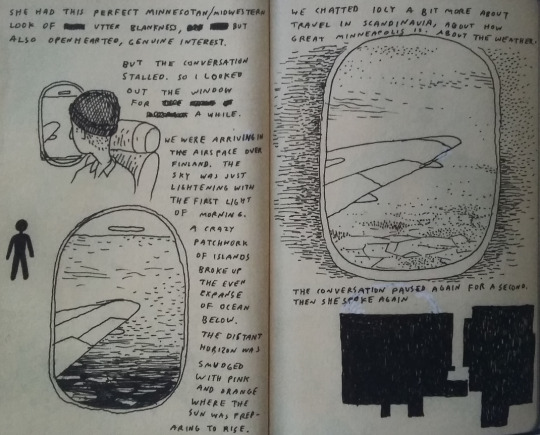 SHE HAD THIS PERFECT MINNESOTAN/MIDWESTERN
LOOK OF UTTER BLANKNESS, BUT
ALSO OPENHEARTED, GENUINE INTEREST.
BUT THE CONVERSATION
STALLED. SO I LOOKED
OUT THE WINDOW
FOR
A WHILE.
WE WERE ARRIVING IN
THE AIRSPACE OVER
FINLAND. THE
SKY WAS JUST
LIGHTENING WITH
THE FIRST LIGHT
OF MORNING.
A CRAZY
PATCHWORK
OF ISLANDS
BROKE UP
THE EVEN
EXPANSE
OF OCEAN
BELOW.
THE DISTANT
HORIZON WAS
SMUDGED
WITH PINK
AND ORANGE
WHERE THE
SUN WAS PREP-
ARING TO RISE.
WE CHATTED IDLY A BIT MORE ABOUT
TRAVEL IN SCANDINAVIA, ABOUT HOW
GREAT MINNEAPOLIS IS. ABOUT THE WEATHER.
THE CONVERSATION PAUSED AGAIN FOR A SECOND.
THEN SHE SPOKE AGAIN